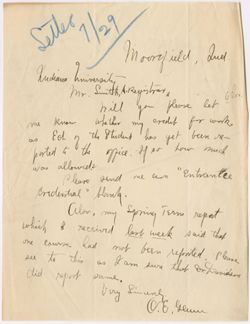 7/29
Moorefield, Ind
Indiana University
Mr. Smith, Registrar,
Will you please let
me know whether my credit for work
as Ed of the Student has yet been re-
ported to the office. If so how much
was allowed?
Please send me an "Entrance
Credential" blank.
Also, my Spring Term report
which I received last week said that
one course had not been reported. Please
see to this as I am sure that Dr.
did report same.
Very Sincerely
O. E.